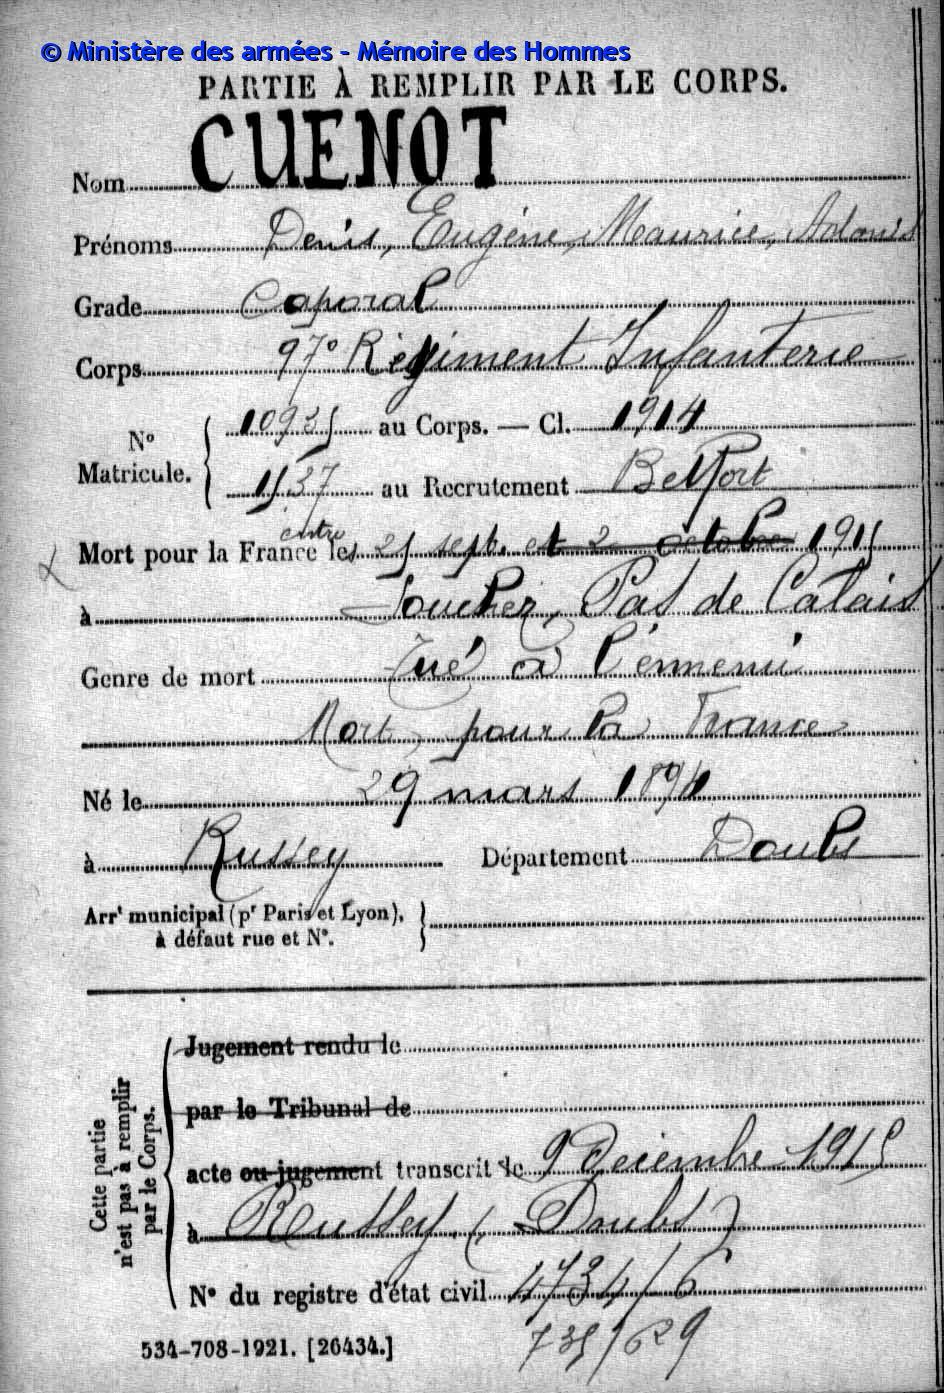 © Ministère des armées - Mémoire des Hommes
PARTIE À REMPLIR PAR LE CORPS.
Nom CUENOT
Prénoms Denis, Eugène, Maurice, Adonis
Grade Caporal
Corps 97e Régiment Infanterie
N° Matricule. { 10935 au Corps. — Cl. 1914
1537 au Recrutement Belfort
entre
Mort pour la France les 25 sept. et 2 octobre 1915
à Souchez, Pas de Calais
Genre de mort Tué à l'ennemi
Mort pour la France
Né le 29 mars 1894
à Russey Département Doubs
Arrt municipal (pr Paris et Lyon),
à défaut rue et N°.
Cette partie
n'est pas à remplir
par le Corps.
Jugement rendu le
par le Tribunal de
acte ou jugement transcrit le 9 Décembre 1915
à Russey (Doubs)
N° du registre d'état civil 4734/6
735/629
534-708-1921. [26434.]